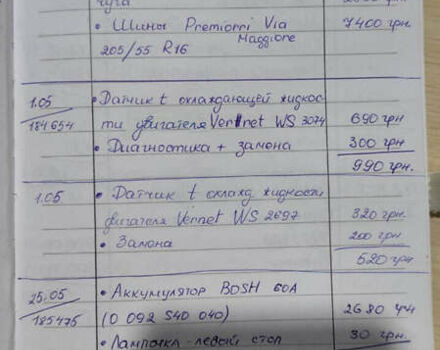 • Шины Premiorri Via 7400 грн.
Maggione
205/55 R16
1.05 • Датчик t охлаждающей жидкос-
184654 ти двигателя Vernet WS 3074 690 грн
• Диагностика + замена 300 грн
990 грн.
1.05 • Датчик t охлажд жидкости
двигателя Vernet WS 2697 320 грн.
• Замена 200 грн
520 грн.
25.05 • Аккумулятор BOSH 60A
185475 (0 092 S40 040) 2680 грн
• Лампочка левый стоп 30 грн.